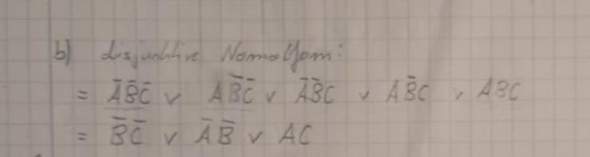 b) disjunktive Normalform:
= A̅B̅C̅ ∨ AB̅C̅ ∨ A̅B̅C ∨ AB̅C ∨ ABC
= B̅C̅ ∨ A̅B̅ ∨ AC